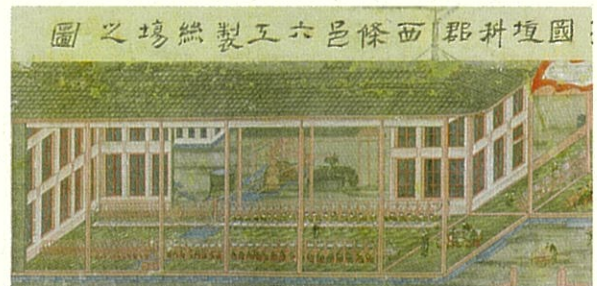 國埴科郡西條邑六工製絲塲之圖